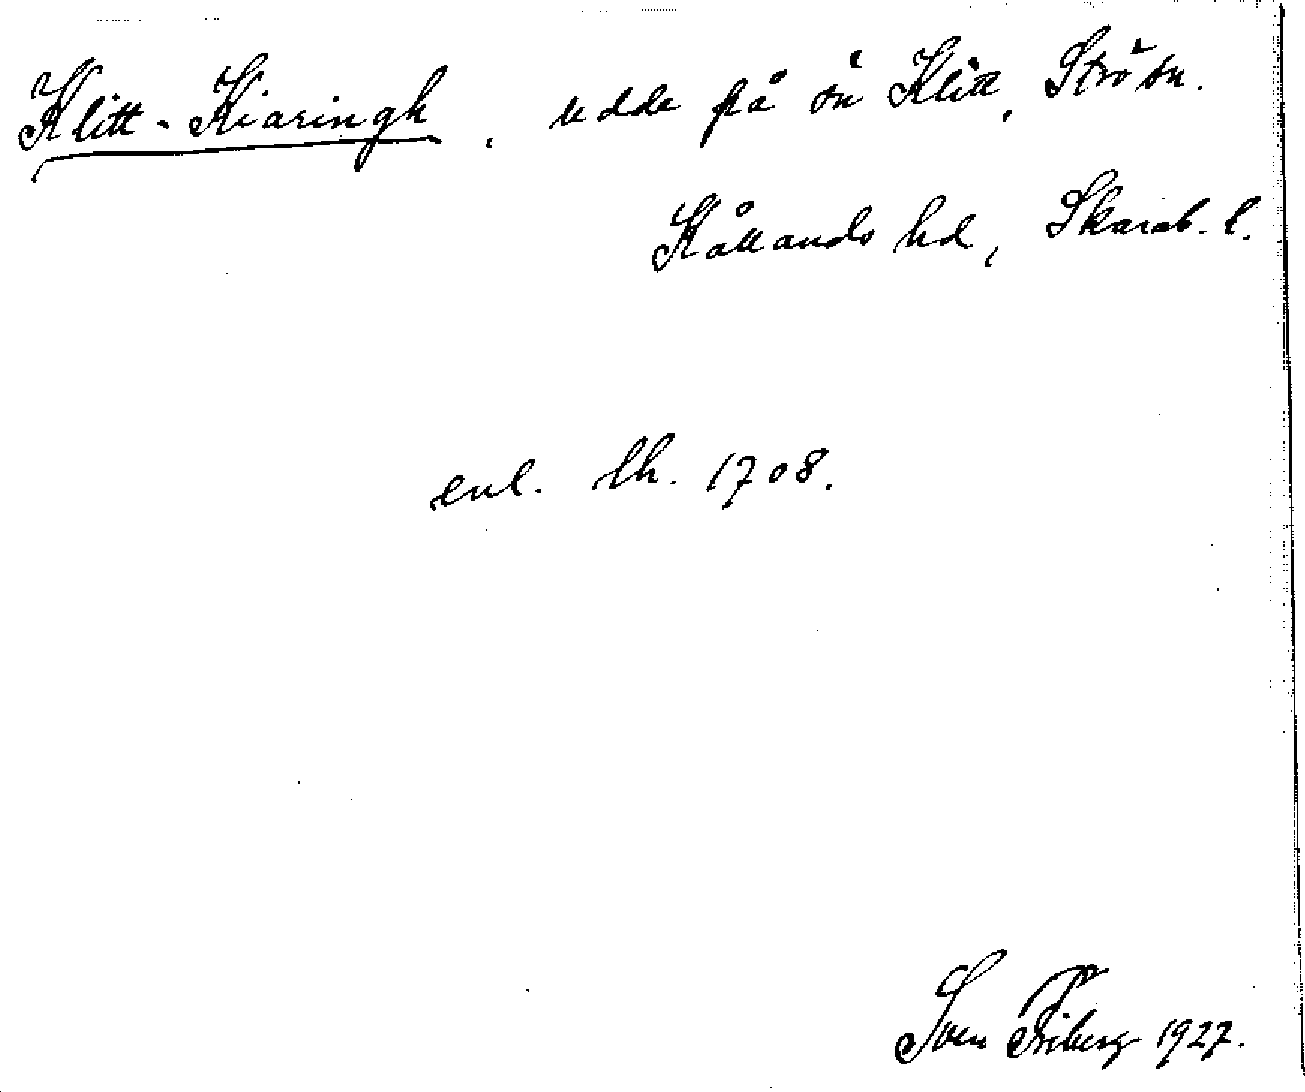 Klitt-Kiaringh, udde på ön Klitt, Strö sn.
Kållands hd, Skarab. l.
enl. lk. 1708.
Sven Friberg 1927.